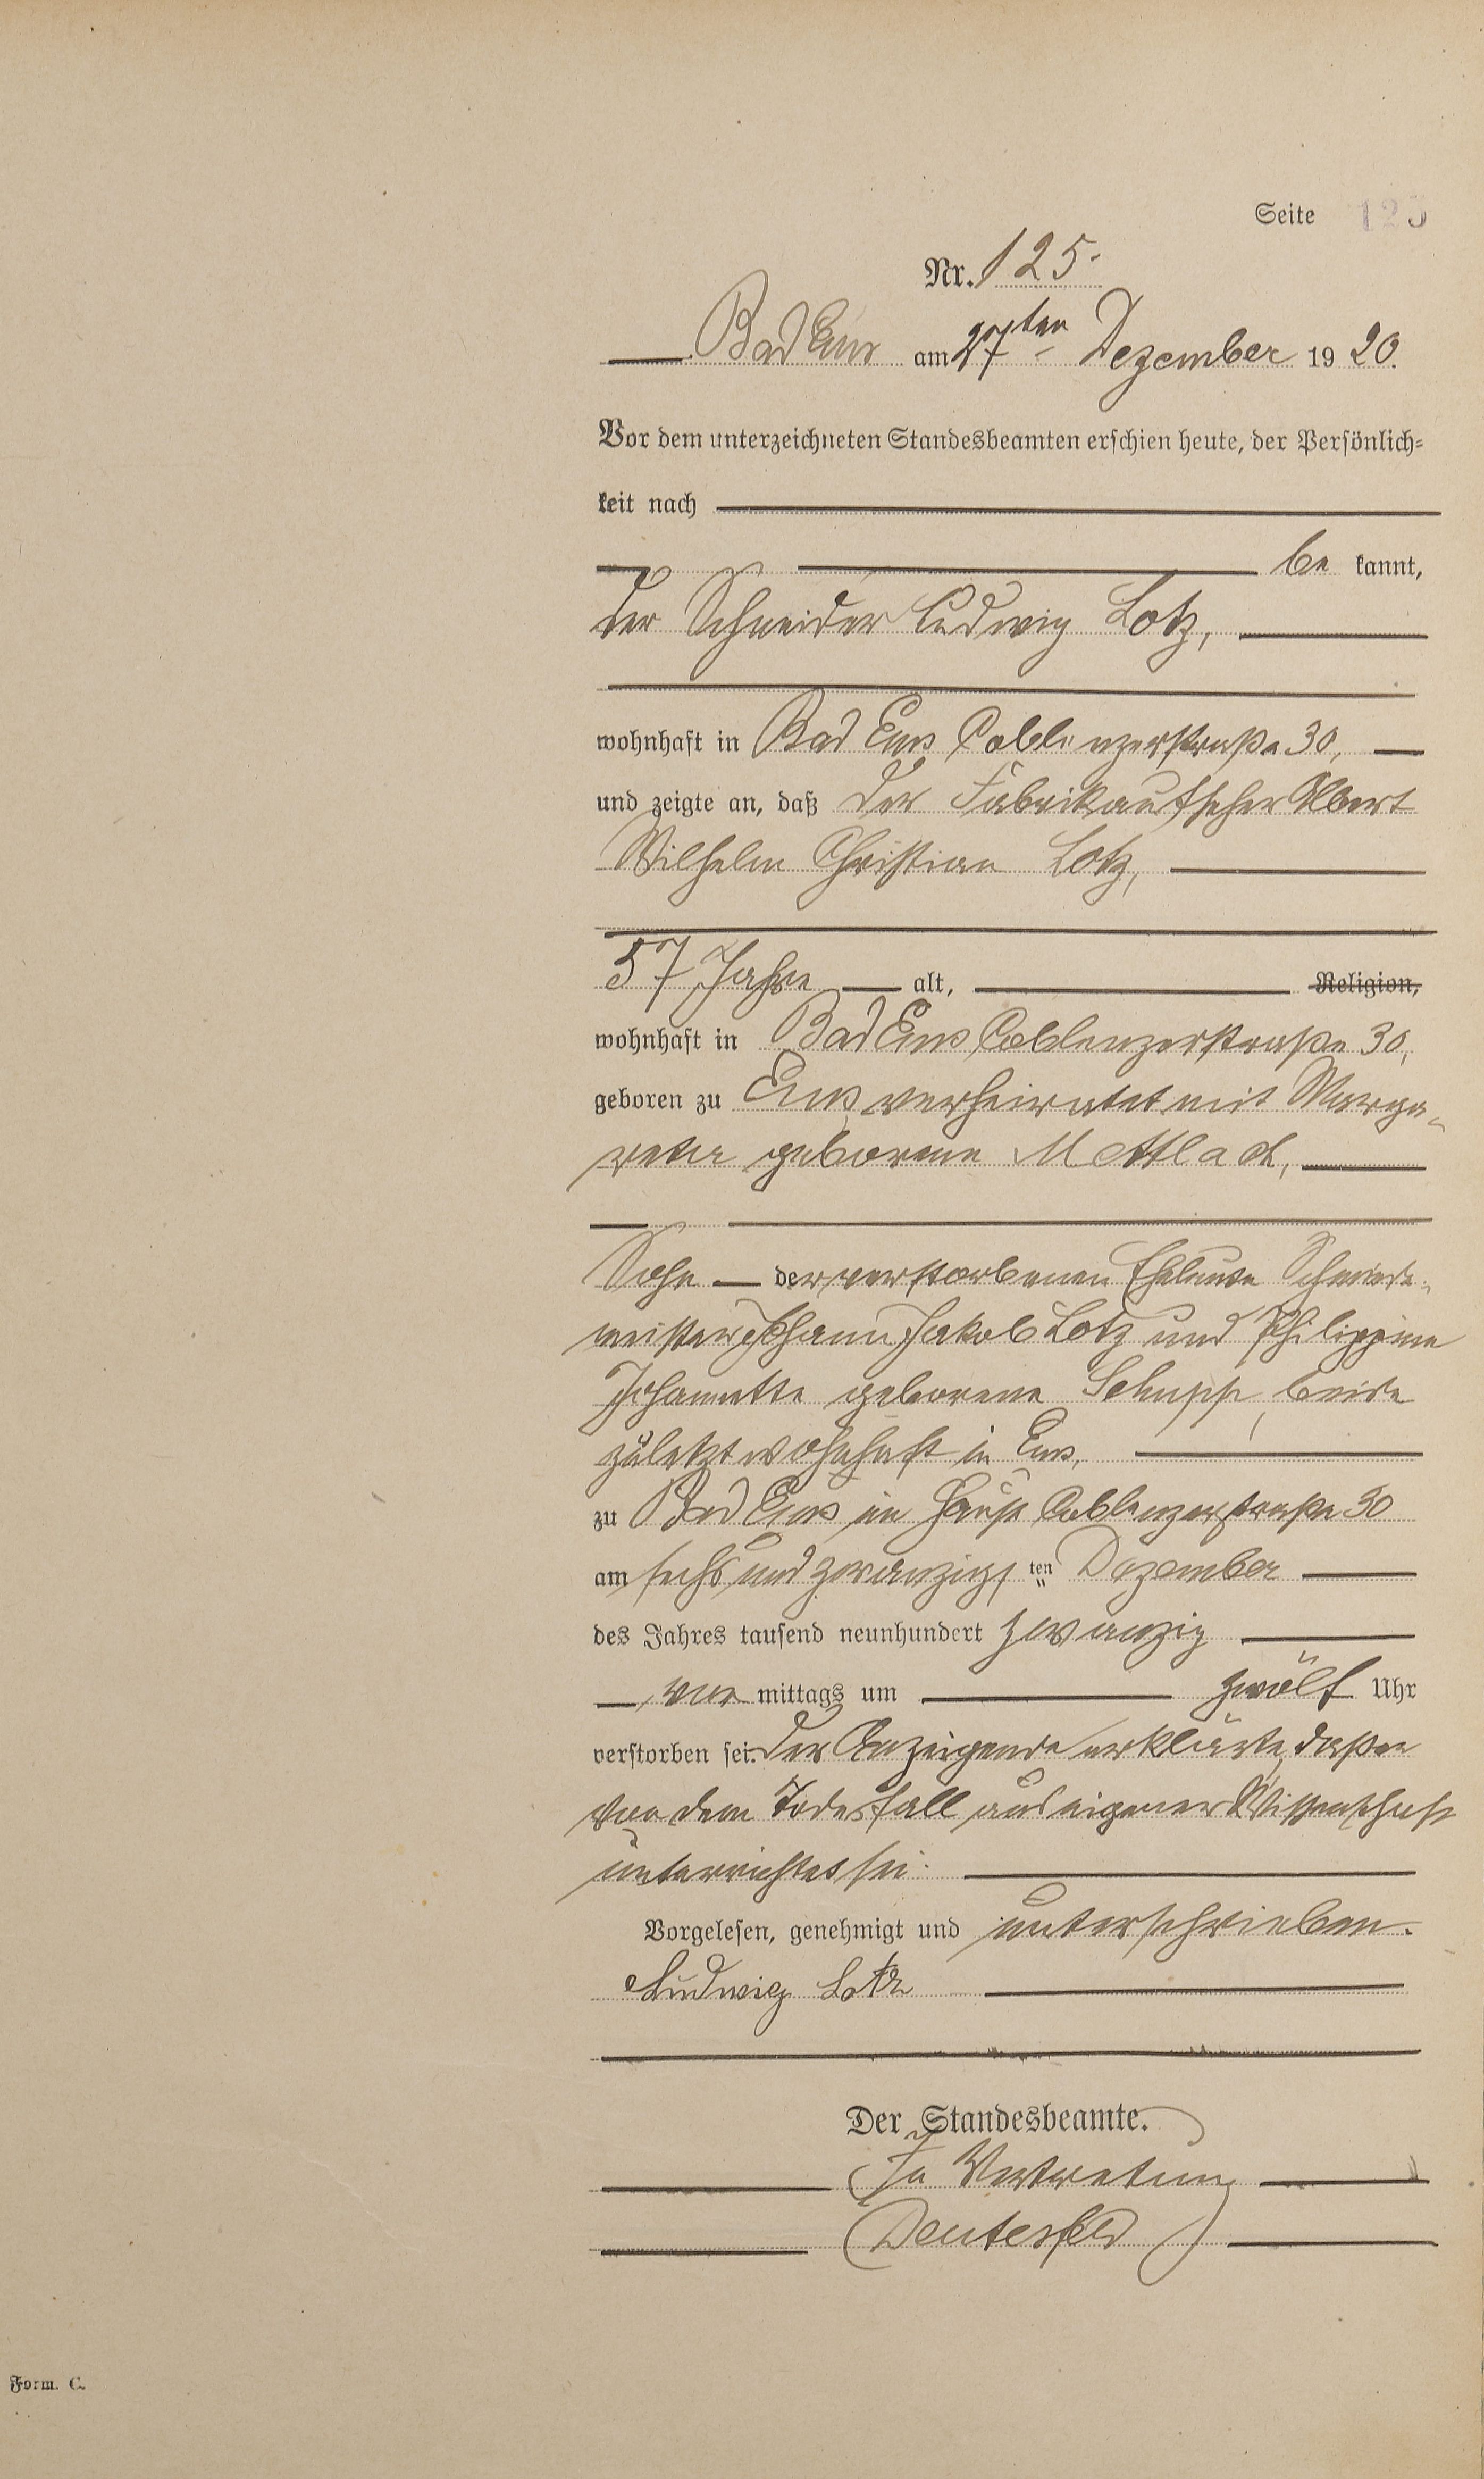 Seite 125
Nr. 125.
Bad Ems am 27ten Dezember 1920.
Vor dem unterzeichneten Standesbeamten erschien heute, der Persönlich=
keit nach
be kannt,
der Schneider Ludwig Lotz,
wohnhaft in Bad Ems Coblenzerstraße 30,
und zeigte an, daß der Fabrikaufseher Albert
Wilhelm Christian Lotz,
57 Jahre alt, Religion,
wohnhaft in Bad Ems Coblenzerstraße 30,
geboren zu Ems, verheiratet mit Marga-
reta geborene Mettlach,
Sohn der verstorbenen Eheleute
meister Johann Jakob Lotz und Philippine
Johannette geborene Schupp, beide
zuletzt wohnhaft in Ems,
zu Bad Ems im Hause Coblenzerstraße 30
am sechs und zwanzigs ten Dezember
des Jahres tausend neunhundert zwanzig
vor mittags um zwölf Uhr
verstorben sei. Der Anzeigende erklärte, daß er
von dem Todesfall aus eigener Wissenschaft
unterrichtet sei.
Vorgelesen, genehmigt und unterschrieben.
Ludwig Lotz
Der Standesbeamte.
In Vertretung
Form. C.